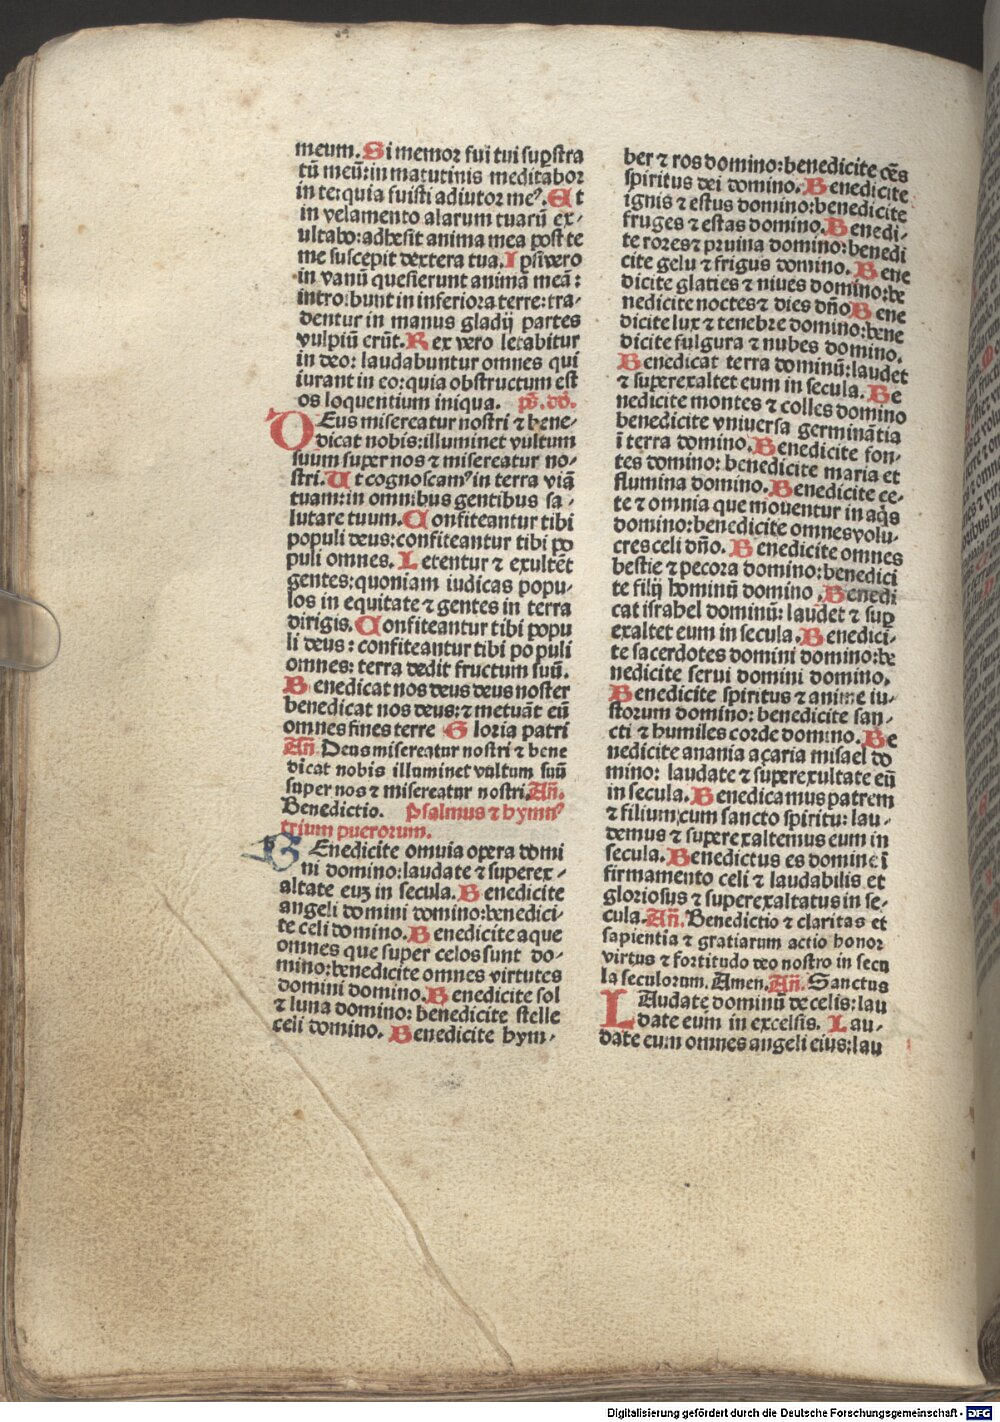 meum. Si memor fui tui sup̱ stra
tū meū: in matutinis meditabor
in te: quia fuisti adiutor meꝰ. Et
in velamento alarum tuarū ex-
ultabo: adhesit anima mea post te
me suscepit dextera tua. Ipsi vero
in vanū quesierunt animā meā:
introibunt in inferiora terre: tra-
dentur in manus gladij partes
vulpiū erūt. Rex vero letabitur
in deo: laudabuntur omnes qui
iurant in eo: quia obstructum est
os loquentium iniqua. ps̄. dd̄.
DEus misereatur nostri ⁊ bene-
dicat nobis: illuminet vultum
suum super nos ⁊ misereatur no-
stri. Ut cognoscamꝰ in terra viā
tuam: in omnibus gentibus sa-
lutare tuum. Confiteantur tibi
populi deus: confiteantur tibi po
puli omnes. Letentur ⁊ exultēt
gentes: quoniam iudicas popu-
los in equitate ⁊ gentes in terra
dirigis. Confiteantur tibi popu
li deus: confiteantur tibi populi
omnes: terra dedit fructum suū.
Benedicat nos deus deus noster
benedicat nos deus: ⁊ metuāt eū
omnes fines terre Gloria patri
Añ. Deus misereatur nostri ⁊ bene
dicat nobis illuminet vultum suū
super nos ⁊ misereatur nostri. Añ.
Benedictio. Psalmus ⁊ hymnꝰ
trium puerorum.
BEnedicite omuia opera domi
ni domino: laudate ⁊ superex-
altate euʒ in secula. Benedicite
angeli domini domino: benedici-
te celi domino. Benedicite aque
omnes que super celos sunt do-
mino: benedicite omnes virtutes
domini domino. Benedicite sol
⁊ luna domino: benedicite stelle
celi domino. Benedicite hym-
ber ⁊ ros domino: benedicite oēs
spiritus dei domino. Benedicite
ignis ⁊ estus domino: benedicite
fruges ⁊ estas domino. Benedi-
te rores ⁊ pruina domino: benedi
cite gelu ⁊ frigus domino. Bene
dicite glacies ⁊ niues domino: be
nedicite noctes ⁊ dies dño Bene
dicite lux ⁊ tenebre domino: bene
dicite fulgura ⁊ nubes domino.
Benedicat terra dominū: laudet
⁊ superexaltet eum in secula. Be
nedicite montes ⁊ colles domino
benedicite vniuersa germinātia
ī terra domino. Benedicite fon-
tes domino: benedicite maria et
flumina domino. Benedicite ce-
te ⁊ omnia que mouentur in aq̄s
domino: benedicite omnes volu-
cres celi dño. Benedicite omnes
bestie ⁊ pecora domino: benedici
te filij hominū domino. Benedi
cat israhel dominū: laudet ⁊ suꝑ
exaltet eum in secula. Benedici-
te sacerdotes domini domino: be
nedicite serui domini domino.
Benedicite spiritus ⁊ anime iu-
storum domino: benedicite san-
cti ⁊ humiles corde domino. Be
nedicite anania açaria misael do
mino: laudate ⁊ superexultate eū
in secula. Benedicamus patrem
⁊ filium: cum sancto spiritu: lau-
demus ⁊ superexaltemus eum in
secula. Benedictus es domine ī
firmamento celi ⁊ laudabilis et
gloriosus ⁊ superexaltatus in se-
cula. Añ. Benedictio ⁊ claritas et
sapientia ⁊ gratiarum actio honor
virtus ⁊ fortitudo deo nostro in secu
la seculorum. Amen. Añ. Sanctus
LAudate dominū de celis: lau
date eum in excelsis. Lau-
date eum omnes angeli eius: lau
Digitalisierung gefördert durch die Deutsche Forschungsgemeinschaft - DFG